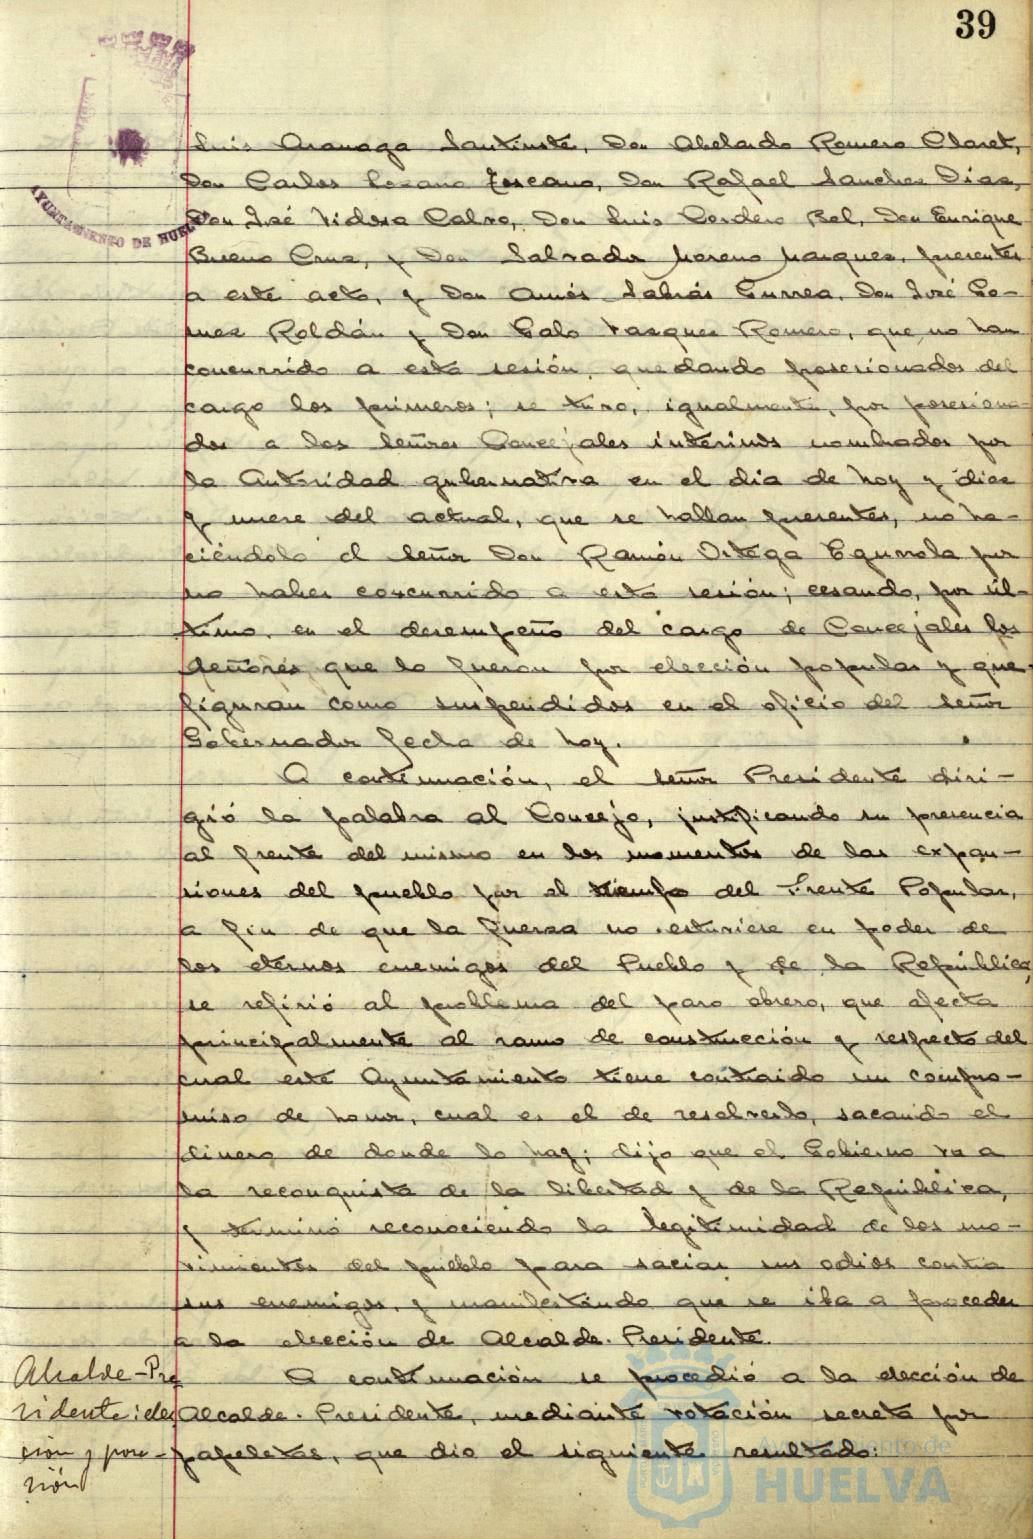 39
AYUNTAMIENTO DE HUELVA
Luis Aranaga Santiuste, Don Abelardo Romero Claret,
Don Carlos Lozano Toscano, Don Rafael Sanchez Diaz,
Don José Vidosa Calvo, Don Luis Cordero Bel, Don Enrique
Bueno Cruz, y Don Salvador Moreno Marquez, presentes
a este acto, y Don Amós Sabrás Gurrea, Don José Go-
mez Roldán y Don Galo Vazquez Romero, que no han
concurrido a esta sesión, quedando posesionados del
cargo los primeros; se tuvo, igualmente, por posesiona-
dos a los señores Concejales interinos nombrados por
la Autoridad gubernativa en el dia de hoy y diez
y nueve del actual, que se hallan presentes, no ha-
ciéndolo el señor Don Ramón Ortega Egurrola por
no haber concurrido a esta sesión; cesando, por úl-
timo, en el desempeño del cargo de Concejales los
señores que lo fueron por elección popular y que
figuran como suspendidos en el oficio del señor
Gobernador fecha de hoy.
A continuación, el señor Presidente diri-
gió la palabra al Concejo, justificando su presencia
al frente del mismo en los momentos de las expan-
siones del pueblo por el triunfo del Frente Popular,
a fin de que la fuerza no estuviese en poder de
los eternos enemigos del Pueblo y de la República,
se refirió al problema del paro obrero, que afecta
principalmente al ramo de construcción y respecto del
cual este Ayuntamiento tiene contraido un compro-
miso de honor, cual es el de resolverlo, sacando el
dinero de donde lo hay; dijo que el Gobierno va a
la reconquista de la libertad y de la República,
y terminó reconociendo la legitimidad de los mo-
vimientos del pueblo para saciar sus odios contra
sus enemigos, y manifestando que se iba a proceder
a la elección de Alcalde-Presidente.
Alcalde-Pre
sidente: elec
ción y pose-
sión
A continuación se procedió a la elección de
Alcalde-Presidente, mediante votación secreta por
papeletas, que dio el siguiente resultado.
Ayuntamiento de
HUELVA